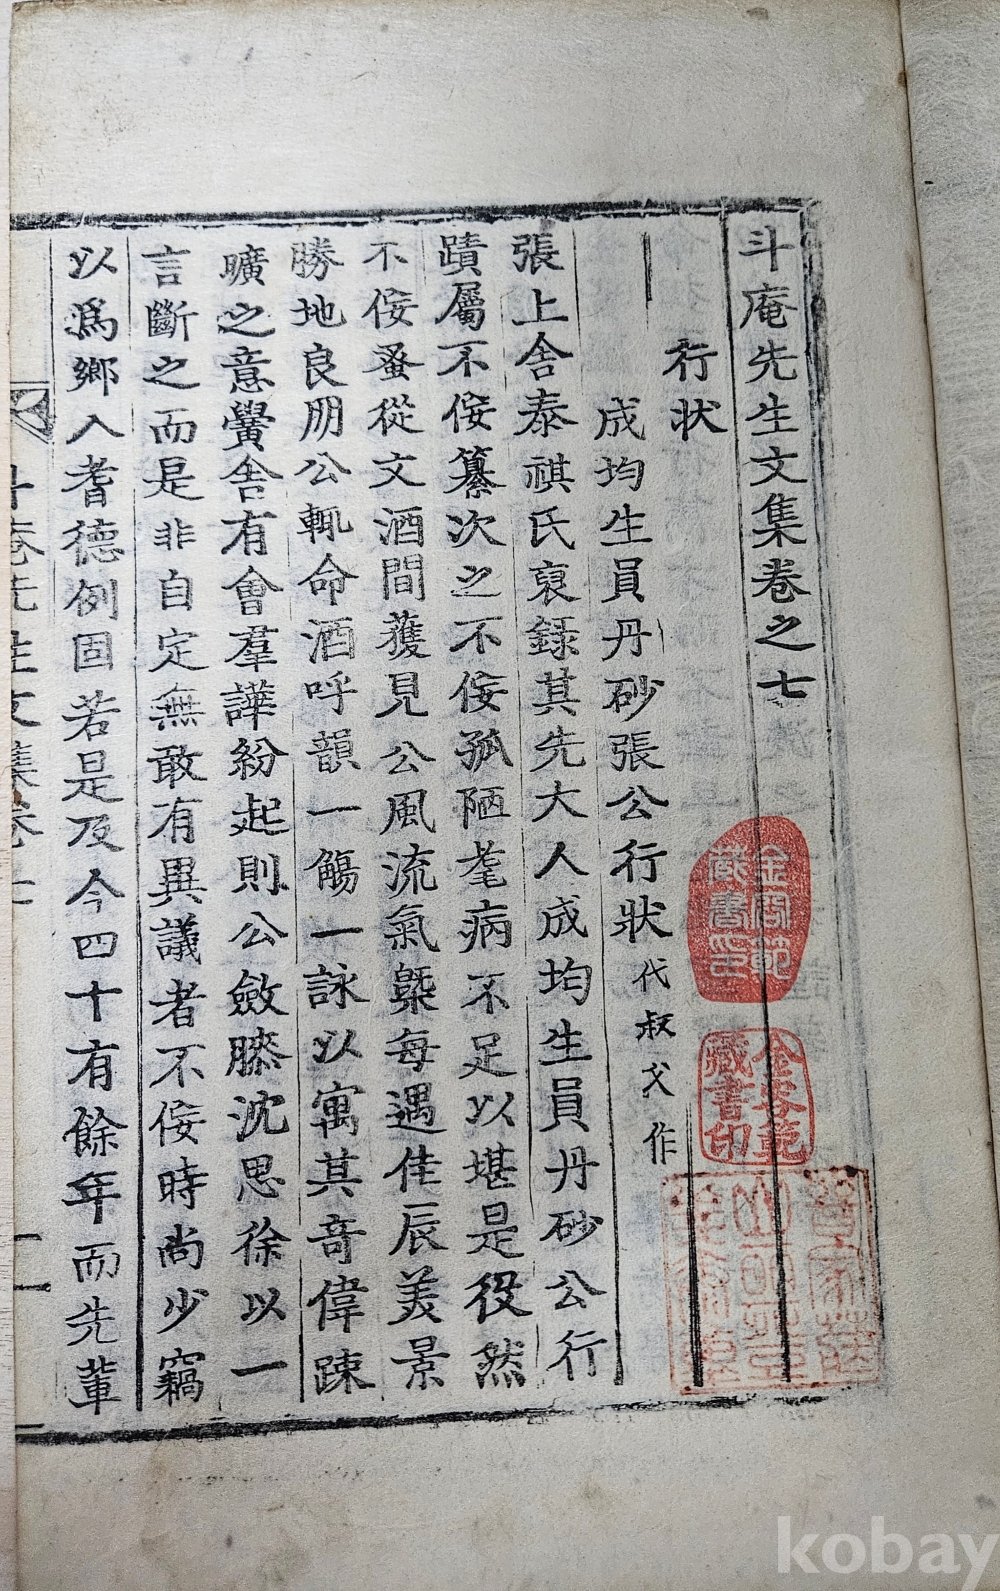 斗庵先生文集卷之七
行狀
成均生員丹砂張公行狀 代叔父作
張上舍泰祺氏裒錄其先大人成均生員丹砂公行
蹟屬不侫纂次之不侫孤陋耄病不足以堪是役然
不侫蚤從文酒間獲見公風流氣槩每遇佳辰美景
勝地良朋公輒命酒呼韻一觴一詠以寓其奇偉踈
曠之意黌舍有會羣譁紛起則公斂膝沈思徐以一
言斷之而是非自定無敢有異議者不侫時尚少竊
以爲鄉人耆德例固若是及今四十有餘年而先輩
斗庵先生文集卷七
金容範
藏書印
金容範
藏書印
kobay